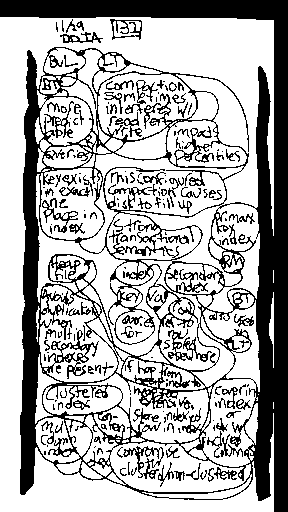 11/29 132
DDIA
BUL LT
BT
more
predict
able
queries
compaction
sometimes
interferes w/
read perf
write
impacts
higher
percentiles
Key exists
in exactly
one
place in
index
misconfigured
compaction causes
disk to fill up
strong
transactional
semantics
primary
key
index
Heap
file
index
secondary
index
RM
key
val
BT
avoids
duplication
when
multiple
secondary
indexes
are present
row
ref to
row
stored
elsewhere
also used
LT
if hop from
index to
expensive,
store indexed
row in index
clustered
index
covering
index
or
index w/
included
columns
multi-
column
index
con-
aten-
ated
in-
dex
compromise
between
clustered/non-clustered